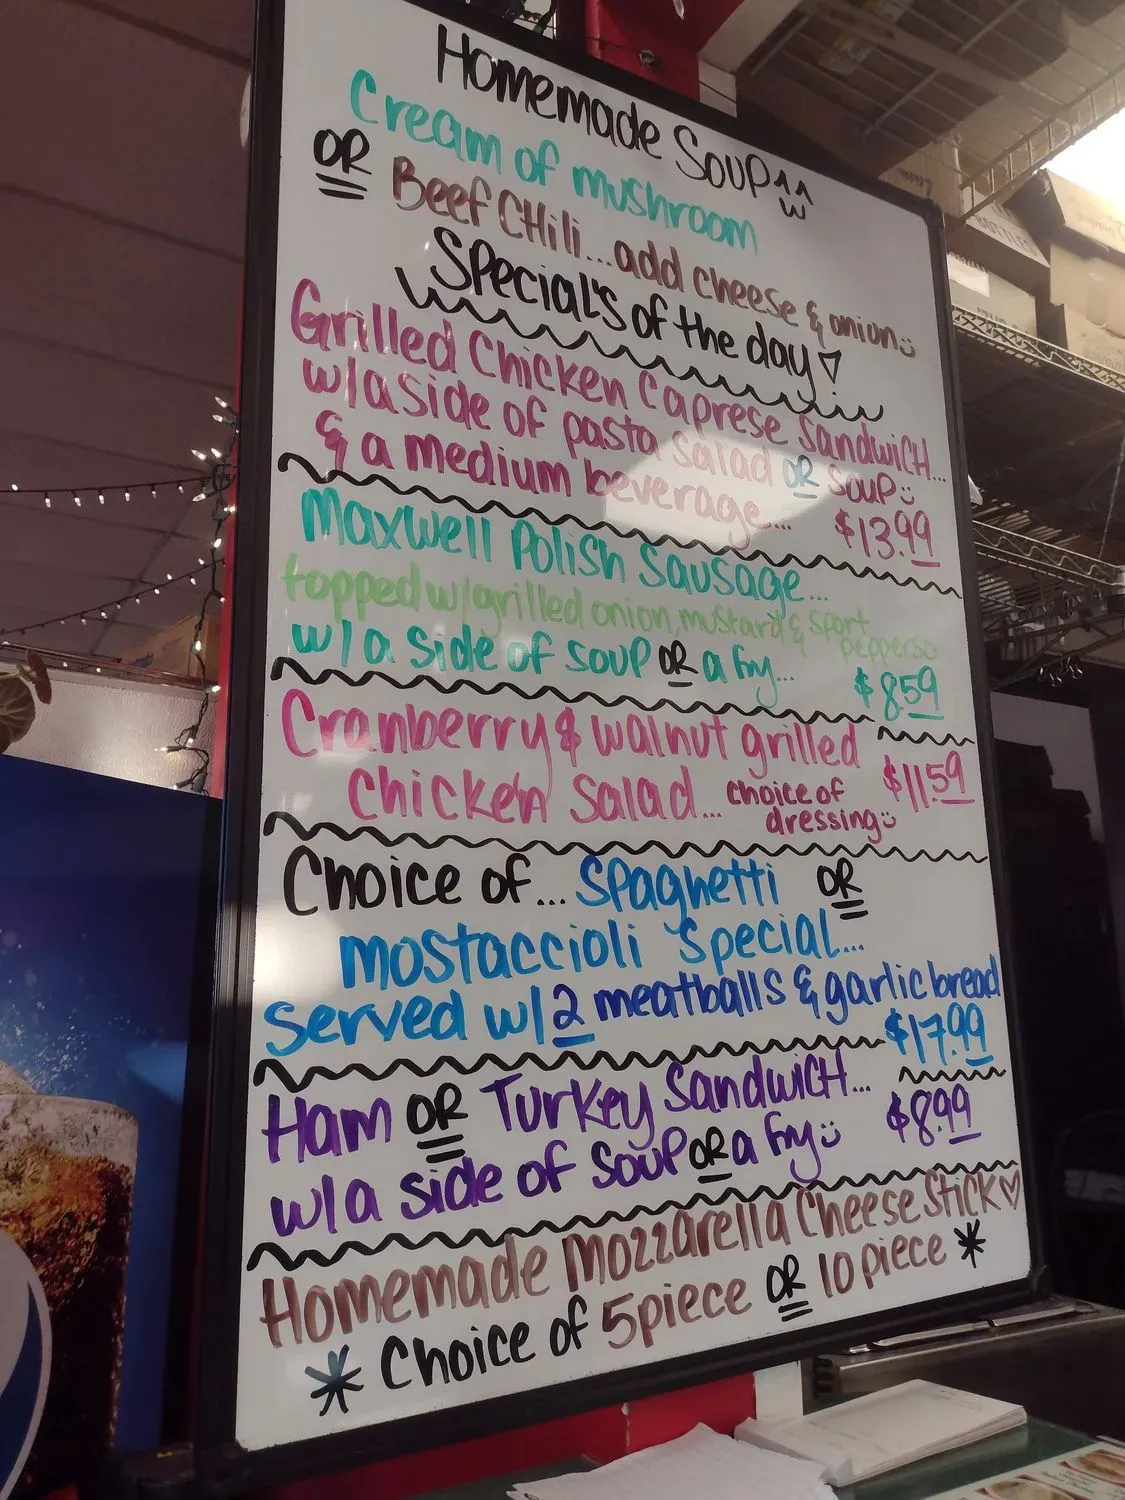 Homemade Soup
Cream of mushroom
OR Beef Chili... add cheese & onion
Special's of the day
Grilled Chicken Caprese Sandwich...
w/a side of pasta salad OR soup
& a medium beverage... $13.99
Maxwell Polish Sausage...
topped w/grilled onion, mustard & sport
peppers
w/a side of soup OR a fry... $8.59
Cranberry & walnut grilled
Chicken Salad... $11.59
choice of
dressing
Choice of... Spaghetti OR
mostaccioli special...
served w/2 meatballs & garlic bread
$17.99
Ham OR Turkey Sandwich... $8.99
w/a side of soup OR a fry
Homemade Mozzarella Cheese Stick
* Choice of 5 piece OR 10 piece *